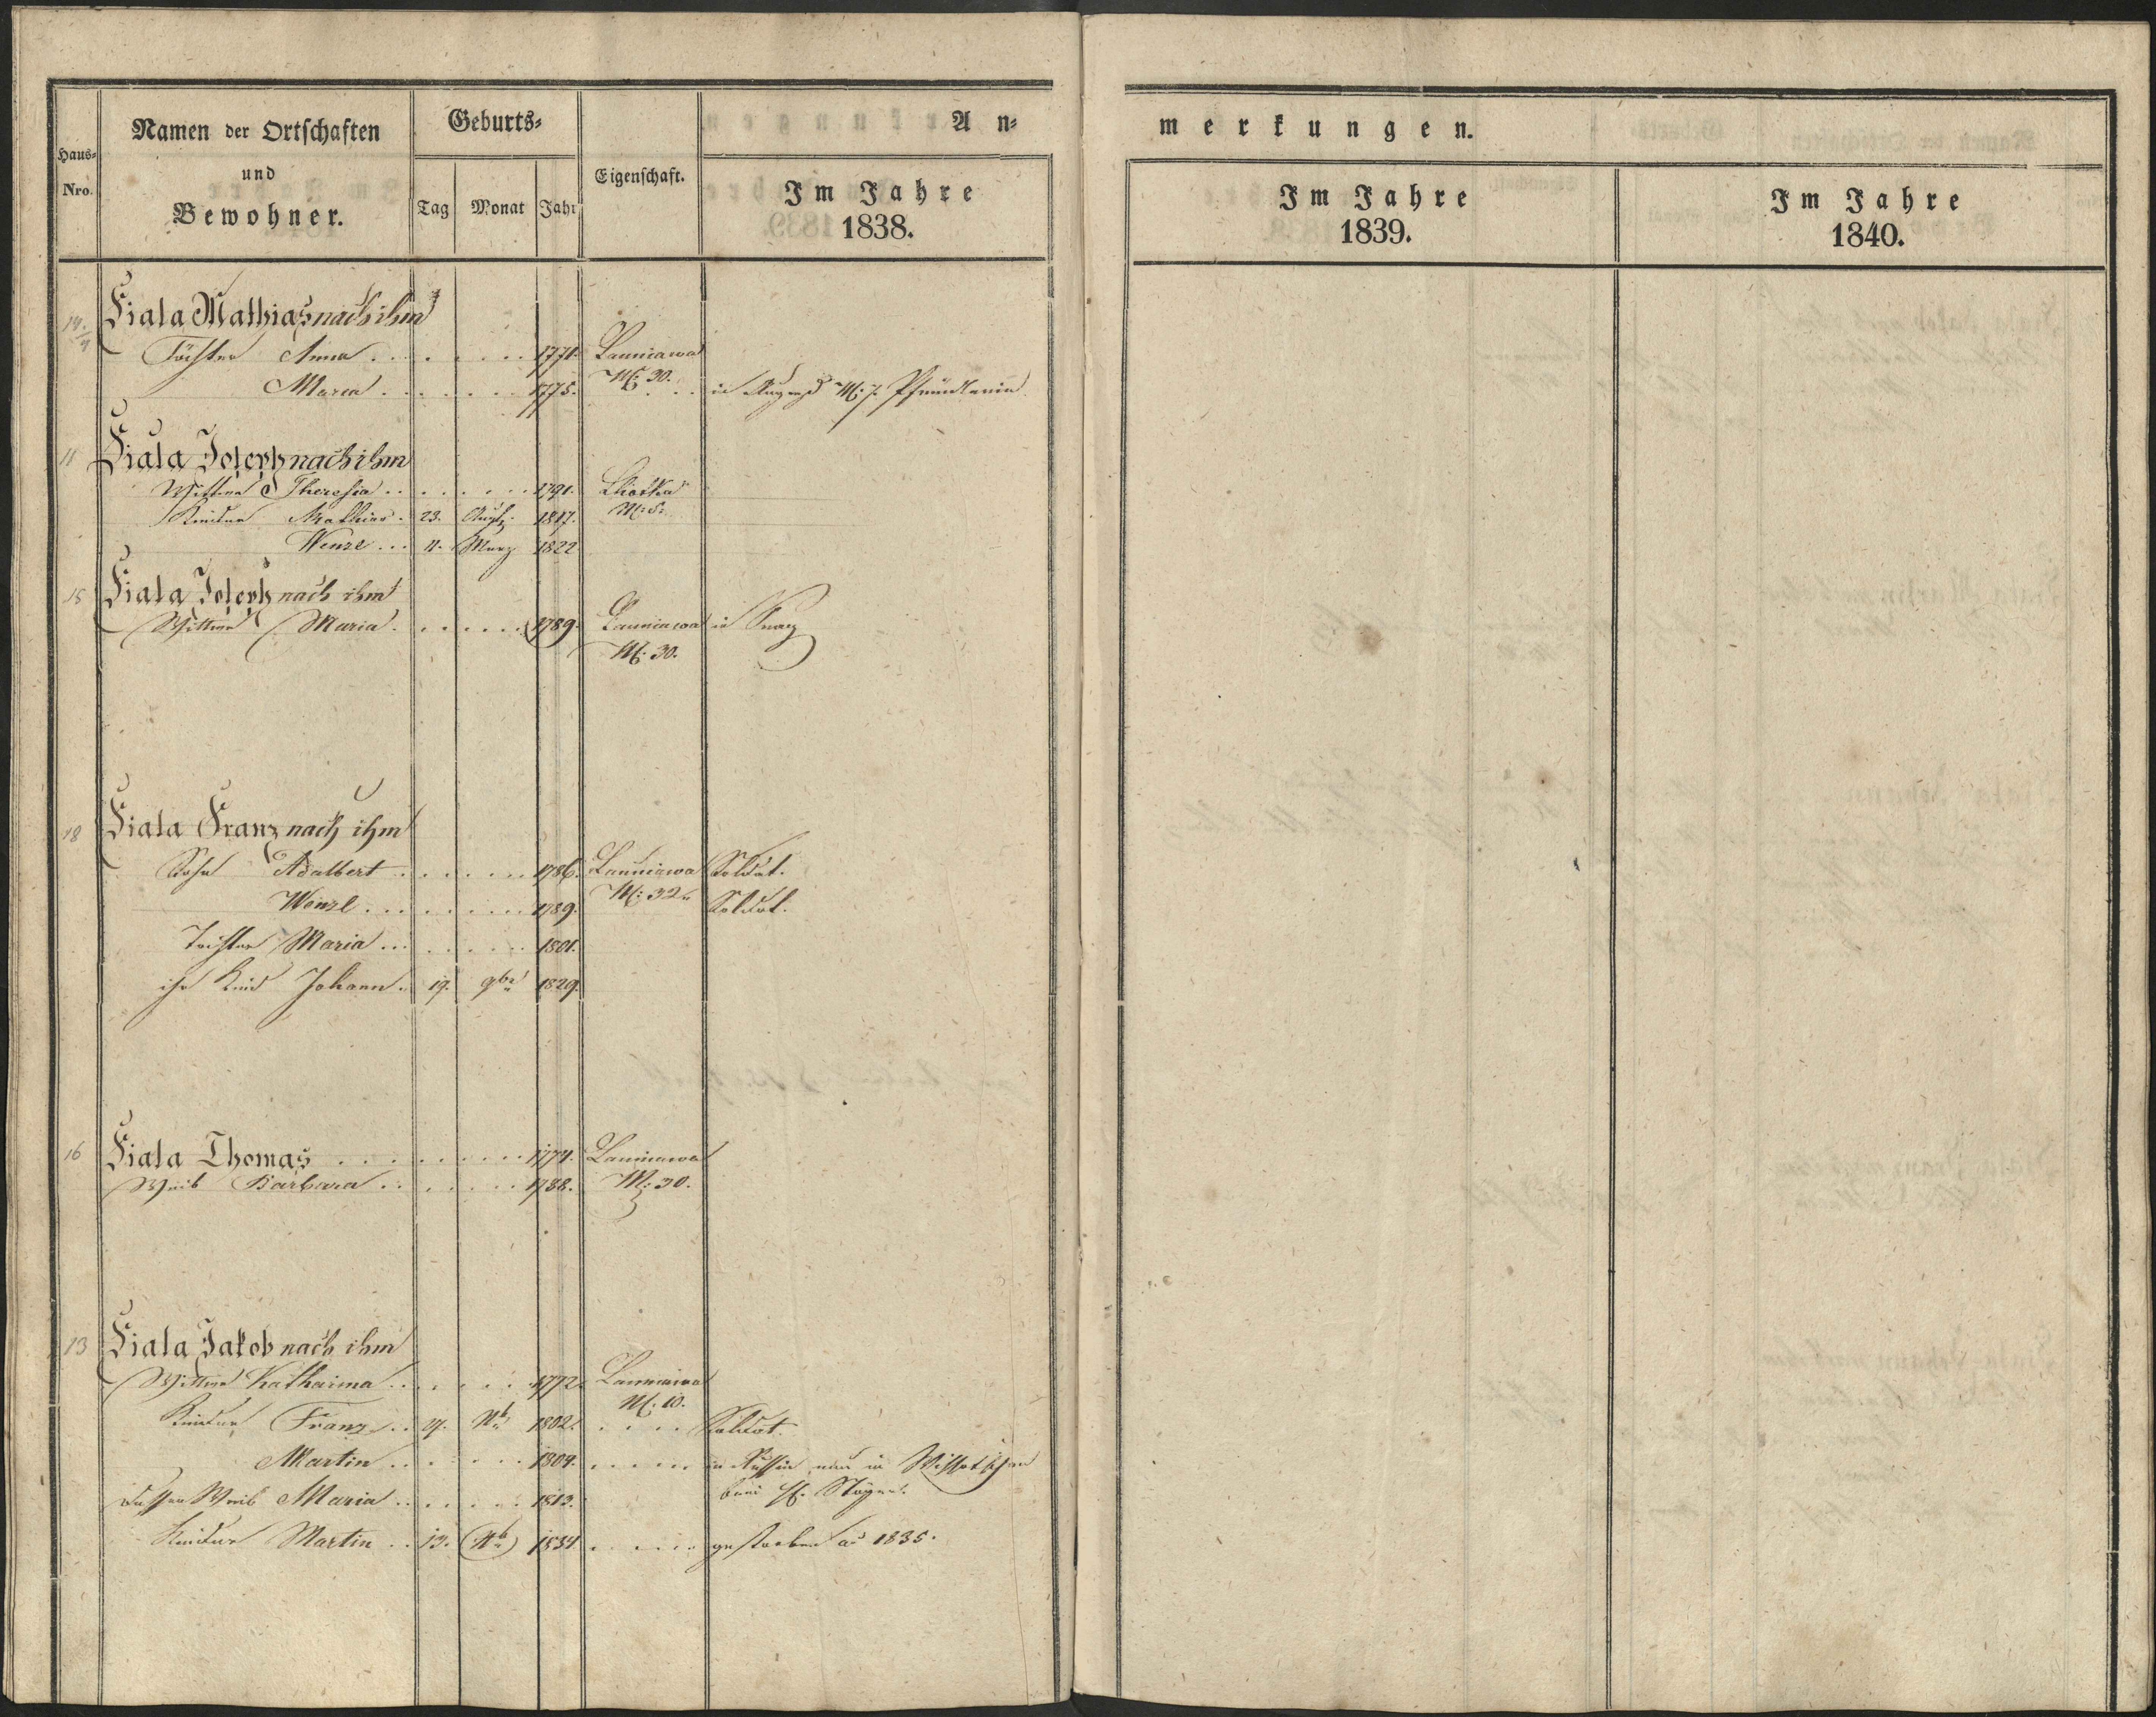 Haus-
Nro.
Namen der Ortschaften
und
Bewohner.
Geburts-
Tag Monat Jahr
Eigenschaft.
An-
Im Jahre
1838.
merkungen.
Im Jahre
1839.
Im Jahre
1840.
Fiala Mathias nach ihm
Töchter Anna . . . 1771. Launiawa
Maria . . . 1775. N: 30. . . in N: 7.
11 Fiala Joseph nach ihm
Wittwe Theresia . . . 1791. Lhotka
Kinder Mathias . 23. Augst. 1817. N: 5.
Wenzl . . . 11. Marz 1822
15 Fiala Joseph nach ihm
Wittwe Maria . . . 1789. Launiawa in
N: 30.
18 Fiala Franz nach ihm
Sohn Adalbert . . . 1786. Launiawa Soldat.
Wenzl . . . 1789. N: 32 Soldat.
Tochter Maria . . . 1801.
ihr Kind Johann . 19. 9br 1829.
16 Fiala Thomas . . . 1774. Launiawa
Weib Barbara . . . 1788. N: 30.
13 Fiala Jakob nach ihm
Wittwe Katharina . . . 1772. Launiawa
N: 10.
Kinder Franz . . 1802. . . . . Soldat.
Martin . . . 1809. . . . in nun in
dessen Weib Maria . . . 1813. beim H.
Kinder Martin . . 13. 1834 . . . gestorben ao 1835.